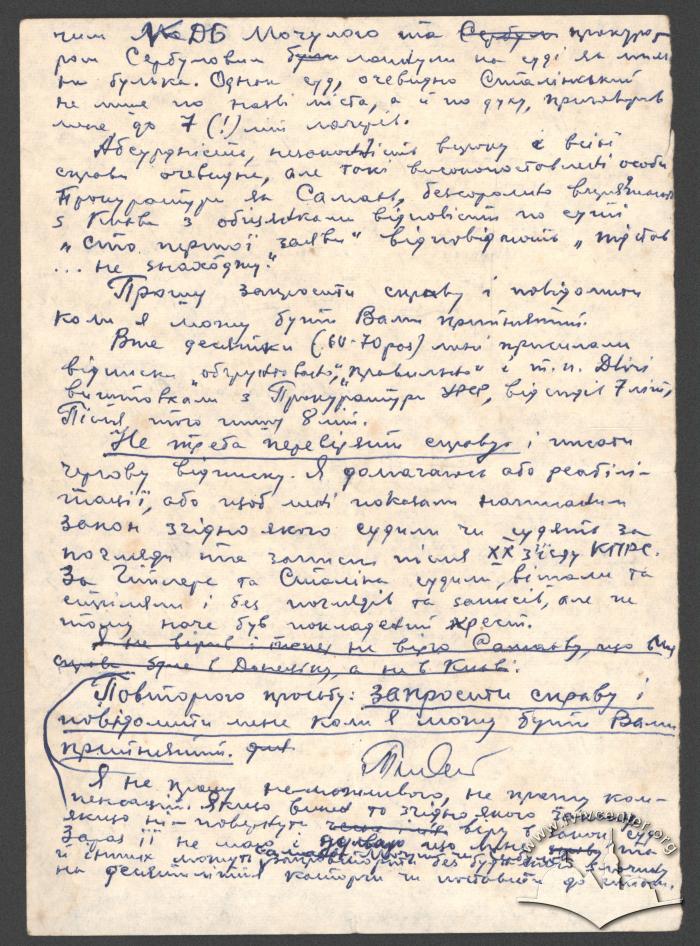 чим КДБ Мочулого та Сербул прокуро-
ром Сербуловим були лопнули на суді як миль-
на булька. Однак суд, очевидно Сталінський
не лише по назві міста, а й по духу, приговорив
мене до 7 (!) літ лагерів.
Абсурдність, незаконність вироку і всієї
справи очевидна, але такі високопоставлені особи
Прокуратури як Самаєв, безсоромно
з Києва з обіцянками відповісти по суті
„сто першої заяви" відповідають „підстав
... не знаходжу."
Прошу запросити справу і повідомити
коли я можу бути Вами прийнятий.
Вже десятки (.60-70 раз) мені присилали
відписки „обгрунтовано", „правильно" і т.п. Двічі
з Прокуратури УРСР, відсидів 7 літ,
Після того пишу 8 літ.
Не треба перевіряти справу і писати
чергову відписку. Я домагаюсь або реабілі-
тації, або щоб мені показали написаний
закон згідно якого судили чи судять за
погляди та записи після XX з'їзду КПРС.
За Гітлера та Сталіна судили, вішали та
стріляли і без поглядів та записів, але на
тому наче був покладений хрест.
Я не вірив і не вірю Самаєву, що
справа буде в Донецьку, а не в Києві.
Повторюю просьбу: запросити справу і
повідомити мене коли я можу бути Вами
прийнятий.
Я не прошу неможливого, не прошу ком-
пенсацій. Якщо винен то згідно якого закону,
якщо ні - повернути віру в закон і суд.
Зараз її не маю і що мене та
й інших можуть запроторити без будь-якого злочину
на десятиліття каторги чи поставити до стінки.
www.lvivcenter.org